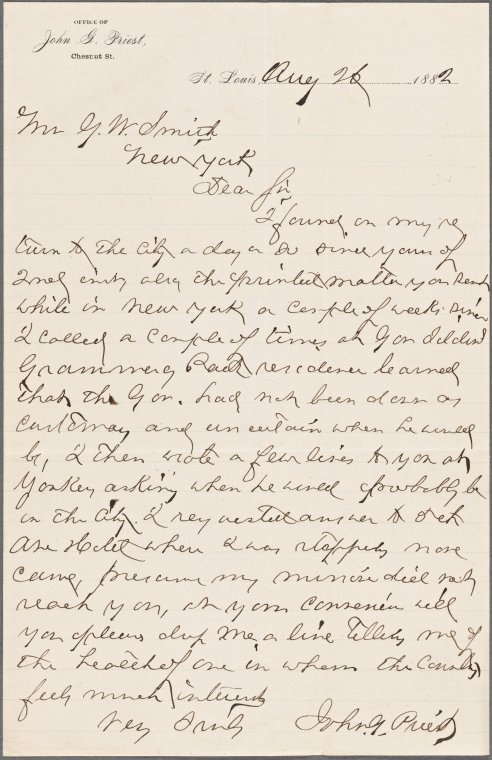 OFFICE OF
John G. Priest,
Chesnut St.
St. Louis, Aug 26 1882
Mr G. W. Smith
New York
Dear Sir
I found on my re
turn to the city a day or so since yours of
2nd inst, also the printed matter you sent
while in New York a couple of weeks since
I called a couple of times at Gov Tildens
Grammercy Park residence learned
that the Gov. had not been down as
and uncertain when he would
be, I then wrote a few lines to you at
Yonkers asking when he would probably be
in the city I requested answer to 5th
Ave Hotel where I was stopping none
came, presume my did not
reach you, at your convenience will
you please drop me a line telling me of
the health of one in whom the country
feels much interest
Very Truly John G. Priest